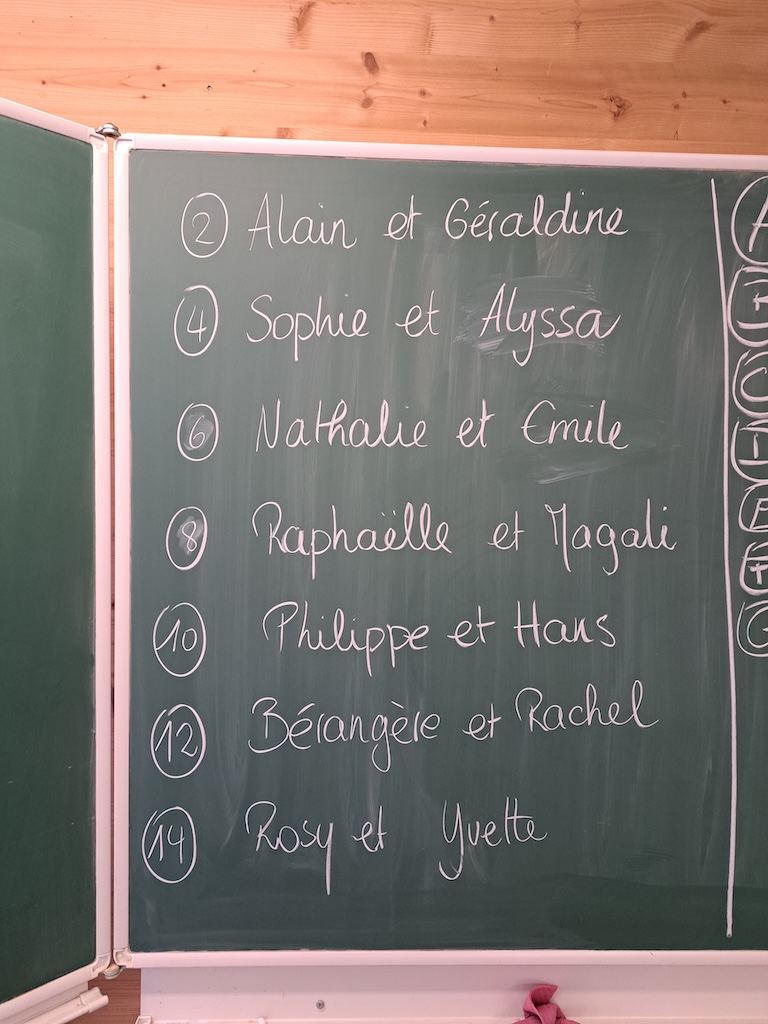 2 Alain et Géraldine
4 Sophie et Alyssa
6 Nathalie et Emile
8 Raphaëlle et Magali
10 Philippe et Hans
12 Bérangère et Rachel
14 Rosy et Yvette
A
C
E